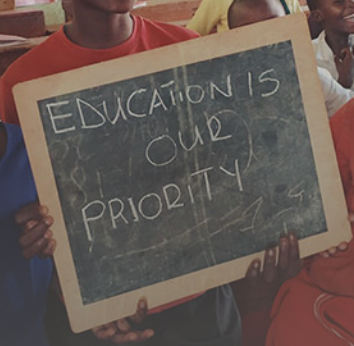 EDUCATION IS
OUR
PRIORITY